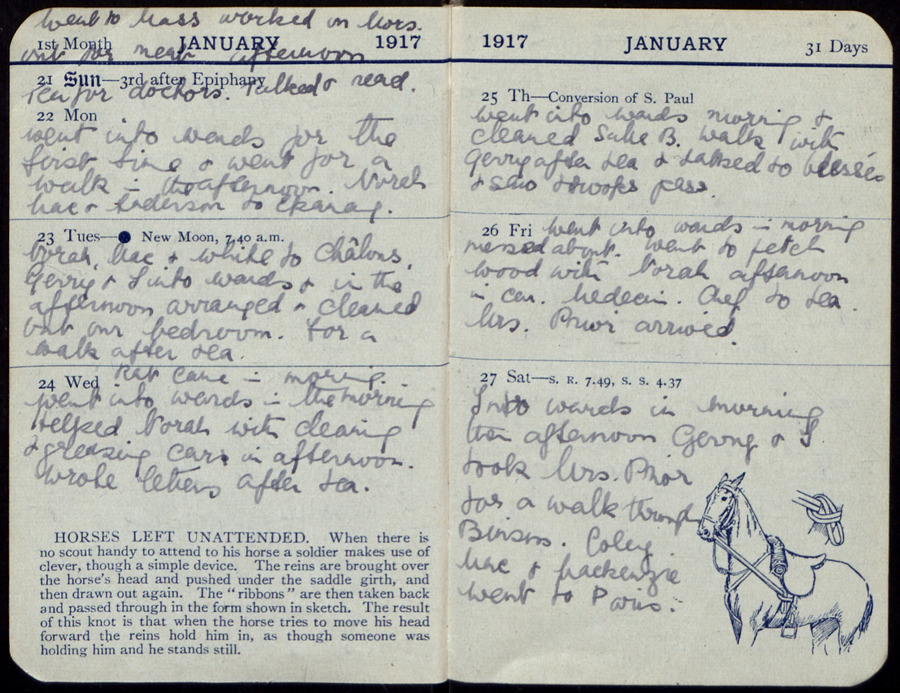 Went to Mass worked in Mrs.
1st Month JANUARY 1917
out for near afternoon
21 Sun—3rd after Epiphany
Tea for doctors. Talked & read.
22 Mon
went into wards for the
first time & went for a
walk in the afternoon. Norah
Mac & Anderson to
23 Tues—● New Moon, 7.40 a.m.
Norah, Mac & White to Châlons.
Gerry & I into wards & in the
afternoon arranged & cleaned
out our bedroom. For a
walk after tea.
24 Wed Kat came in morning.
went into wards in the morning
helped Norah with cleaning
& greasing cars in afternoon.
Wrote letters after tea.
HORSES LEFT UNATTENDED. When there is
no scout handy to attend to his horse a soldier makes use of
clever, though a simple device. The reins are brought over
the horse's head and pushed under the saddle girth, and
then drawn out again. The "ribbons" are then taken back
and passed through in the form shown in sketch. The result
of this knot is that when the horse tries to move his head
forward the reins hold him in, as though someone was
holding him and he stands still.
1917 JANUARY 31 Days
25 Th—Conversion of S. Paul
went into wards morning &
cleaned Salle B. walk with
Gerry after tea & talked to blessés
& saw troops pass.
26 Fri went into wards in morning
messed about. Went to fetch
wood with Norah afternoon
in car. Médecin. Chef to tea.
Mrs. Prior arrived.
27 Sat—S. R. 7.49, S. S. 4.37
Into wards in morning
afternoon Gerry & I
took Mrs. Prior
for a walk through
Binson. Coley
Mac & Mackenzie
went to Paris.